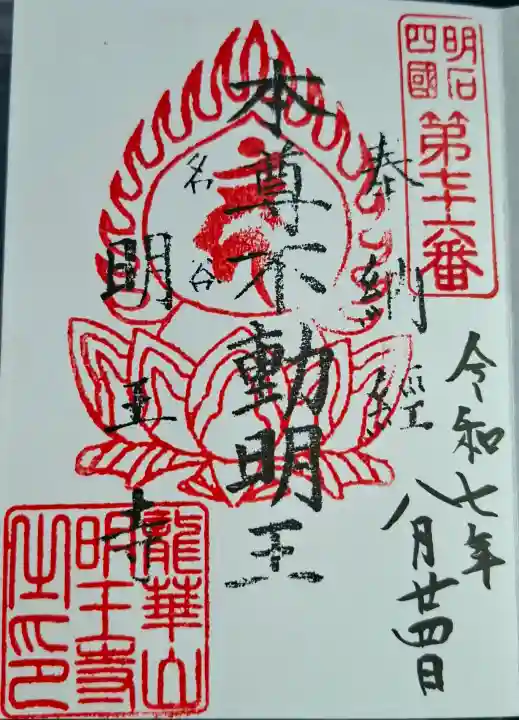 明石
四國
第七十六番
奉納経
本尊不動明王
名谷
明王寺
令和七年
八月廿四日
龍華山
明王寺
之印